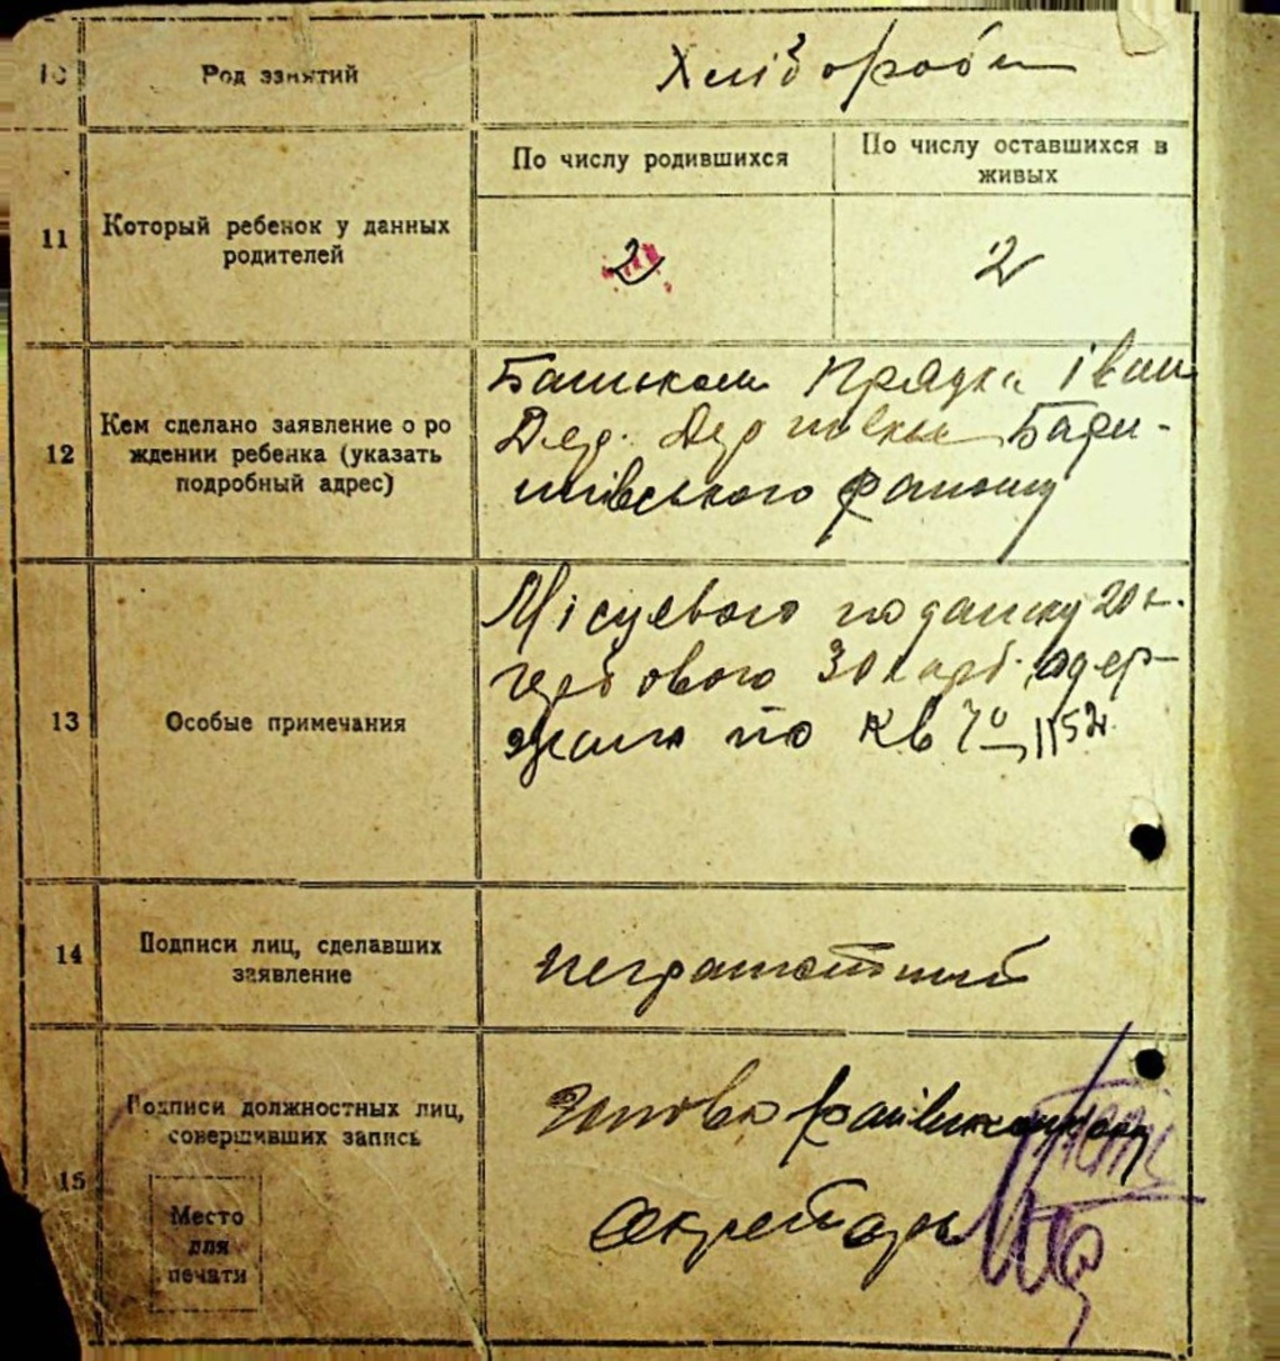 10
Род занятий
Хлібороби
По числу родившихся
По числу оставшихся в
живых
11
Который ребенок у данных
родителей
2
2
12
Кем сделано заявление о ро
ждении ребенка (указать
подробный адрес)
Батьком Прядка Іван
Дер. Бари-
шівського району
13
Особые примечания
Місцевого податку 20 к.
гербового 30 карб. одер-
жано по кв
14
Подписи лиц, сделавших
заявление
неграмотный
15
Подписи должностных лиц,
совершивших запись
Голова райвиконкому
Место
для
печати
Секретарь